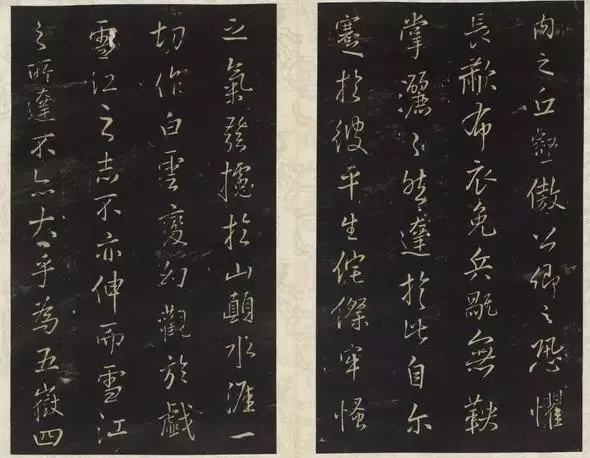 內之丘壑傲公卿之恐懼
長布衣免兵無鞅
掌灑〻然達於此自尔
蹇於彼平生侘傺牢慅
之氣發攄於山顛水涯一
切作白雲變幻觀於戲
雪江之志不亦伸而雪江
之所達不亦大乎為五嶽四